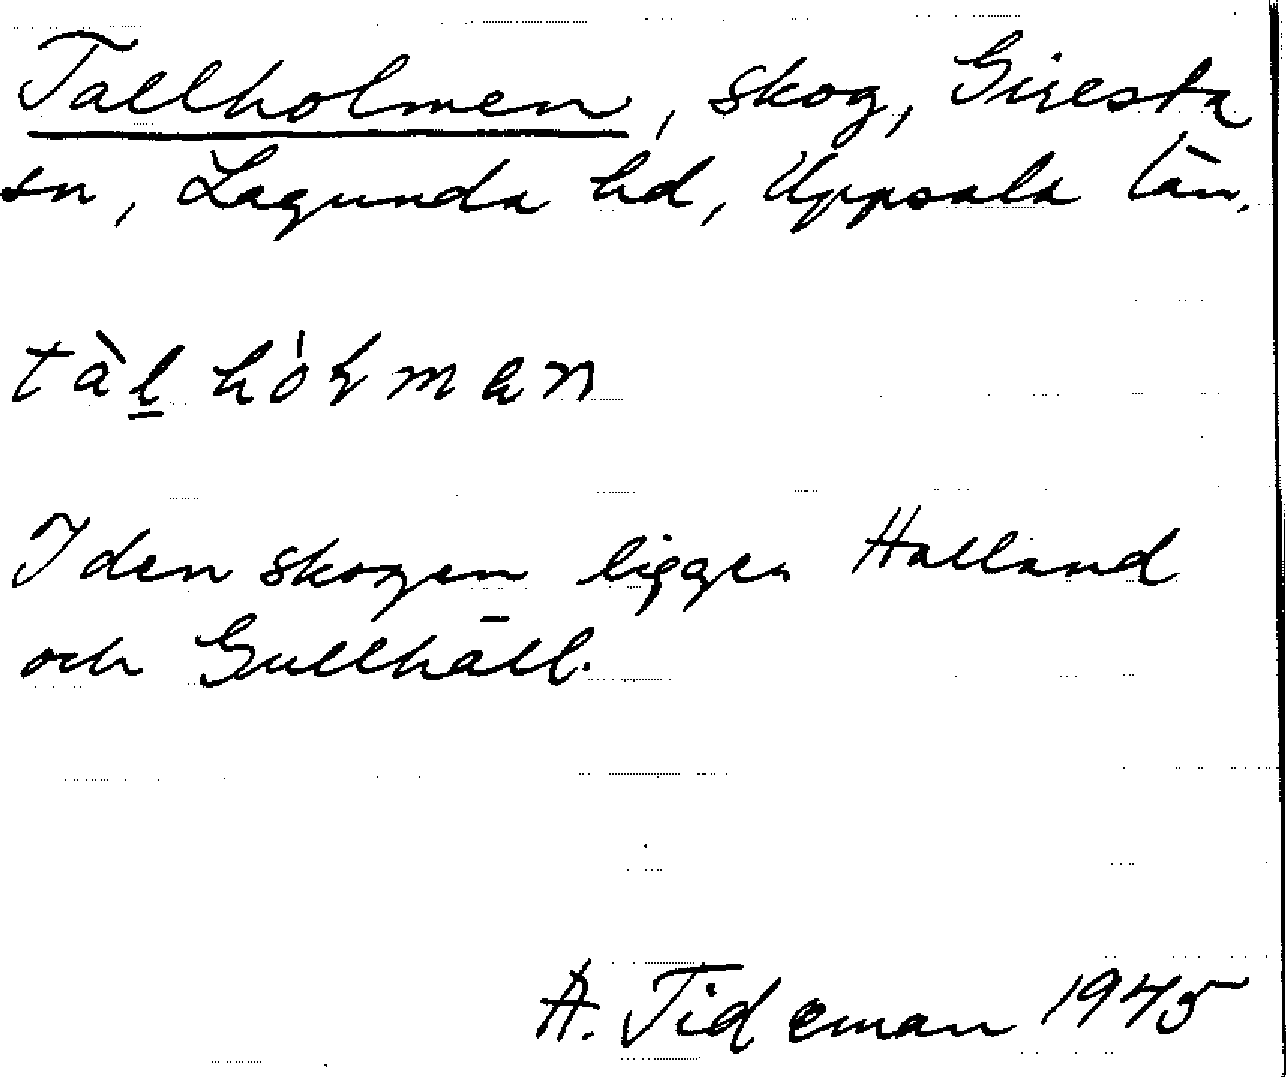 Tallholmen, skog, Giresta
sn, Lagunda hd, Uppsala län.
tàl̲hól̥man
I den skogen ligger Halland
och Gullhäll.
A. Tideman 1945